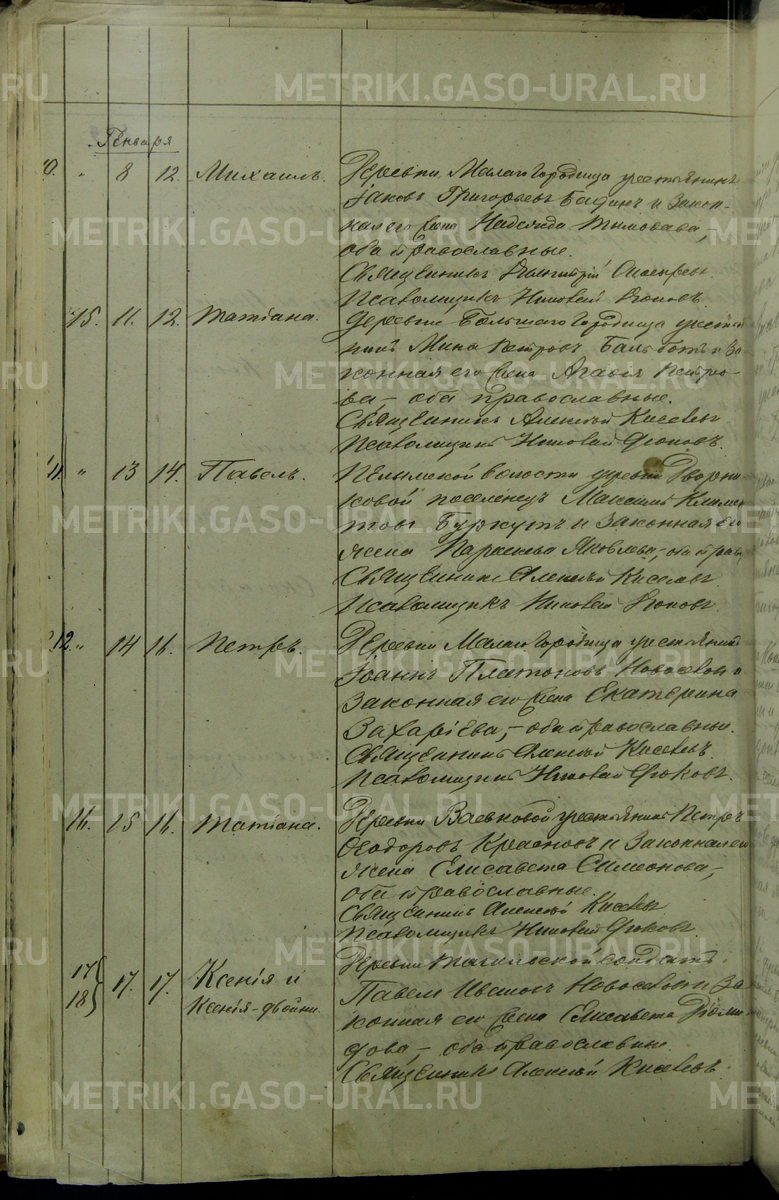 Генваря
10. " 8 12 Михаилъ. Деревни Малаго Городища крестьянинъ
Іаковъ Григорьевъ и закон-
ная его жена Надежда
оба православные.
Священникъ Димитрій
Псаломщикъ Поповъ.
15. 11. 12. Татіана. Деревни Большаго Городища крестья-
нинъ Мина Петровъ и за-
конная его жена Агафія Петро-
ва – оба православные.
Священникъ Алексѣй Киселевъ
Псаломщикъ Поповъ.
11. " 13 14. Павелъ. Пелымской волости деревни Дворни-
ковой поселенецъ Максимъ Климен-
товъ Буркутъ и законная его
жена Параскева Яковлева, оба прав.
Священникъ Алексѣй Киселевъ
Псаломщикъ Поповъ.
12. " 14 16. Петръ. Деревни Малаго Городища крестьянинъ
Іоаннъ Платоновъ Новоселовъ и
законная его жена Екатерина
Захаріева, – оба православные.
Священникъ Алексѣй Киселевъ.
Псаломщикъ Поповъ.
16. 15 16. Татіана. Деревни Васьковой крестьянинъ Петръ
Ѳеодоровъ и законная его
жена Елисавета Симеонова,
оба православные.
Священникъ Алексѣй Киселевъ
Псаломщикъ Поповъ.
17 18} 17. 17. Ксенія и Деревни солдатъ
Ксенія-двойни. Павелъ Ивановъ Новоселовъ и за-
конная его жена Елисавета
дова, – оба православные.
Священникъ Алексѣй Киселевъ.
METRIKI.GASO-URAL.RU